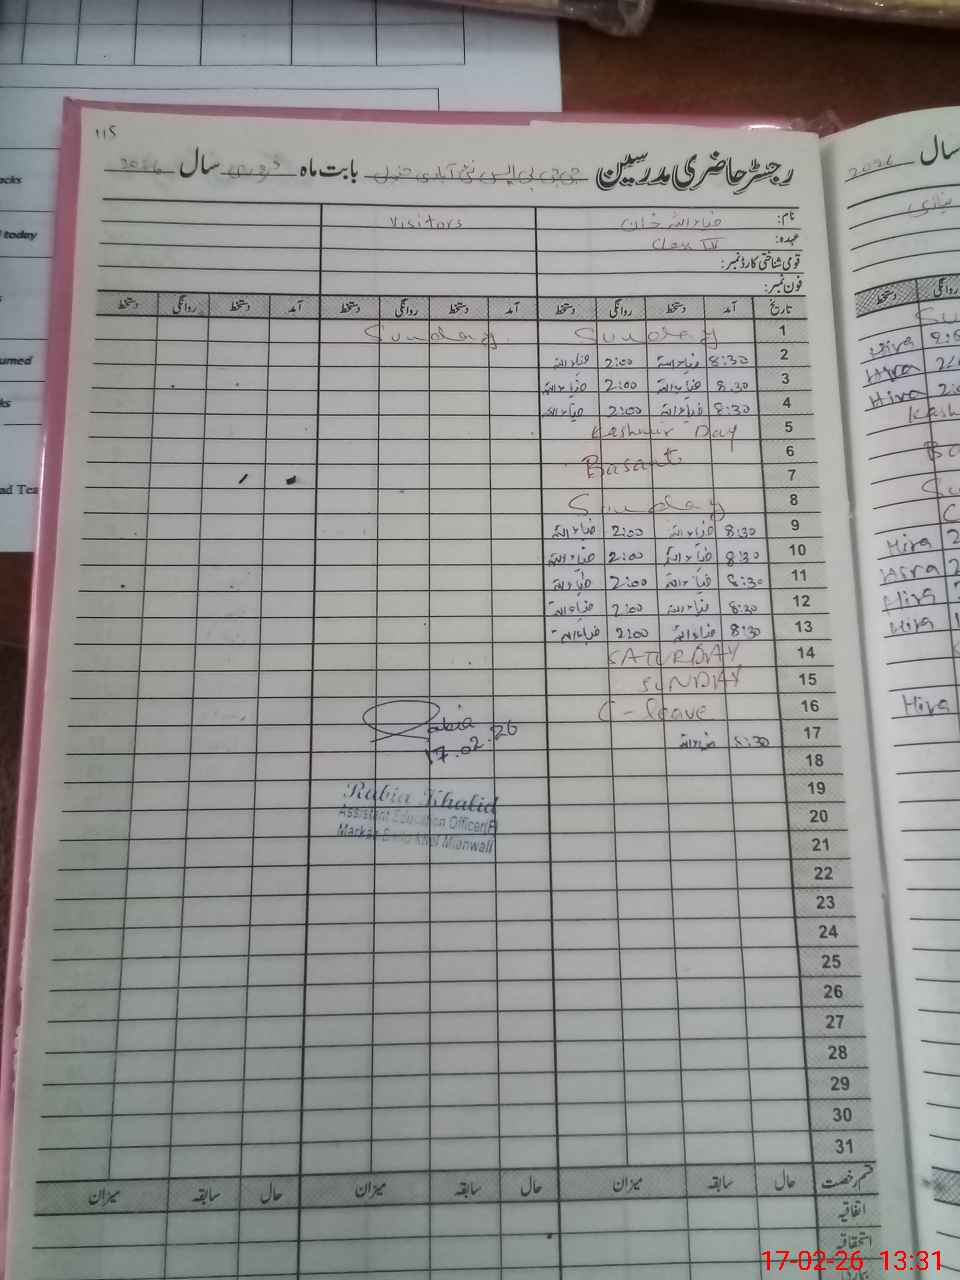 115
رجسٹر حاضری مدرسین بابت ماہ فروری سال 2026
نام: ضیاء اللہ خان Visitors
عہدہ: Class IV
قومی شناختی کارڈ نمبر:
فون نمبر:
تاریخ آمد دستخط روانگی دستخط آمد دستخط روانگی دستخط آمد دستخط روانگی دستخط
1 Sunday Sunday
2 8:30 ضیاء اللہ 2:00 ضیاء اللہ
3 8:30 ضیاء اللہ 2:00 ضیاء اللہ
4 8:30 ضیاء اللہ 2:00 ضیاء اللہ
5 Kashmir Day
6 Basant
7
8 Sunday
9 8:30 ضیاء اللہ 2:00 ضیاء اللہ
10 8:30 ضیاء اللہ 2:00 ضیاء اللہ
11 8:30 ضیاء اللہ 2:00 ضیاء اللہ
12 8:30 ضیاء اللہ 2:00 ضیاء اللہ
13 8:30 ضیاء اللہ 2:00 ضیاء اللہ
14 SATURDAY
15 SUNDAY
16 C-leave
Rabia
17 8:30 ضیاء اللہ
17.02.26
18
19
Rabia Khalid
20
Assistant Education Officer(F)
21
Markaz Mianwali
22
23
24
25
26
27
28
29
30
31
قسم رخصت حال سابقہ میزان حال سابقہ میزان حال سابقہ میزان
اتفاقیہ
استحقاقیہ
سال 2026
دستخط روانگی
Hira
Hira
Hira 2:0
Kash
Ba
Su
Hira 2
Hira
Hira
Hira
Hira
acks
today
umed
ks
ad Tea
17-02-26 13:31